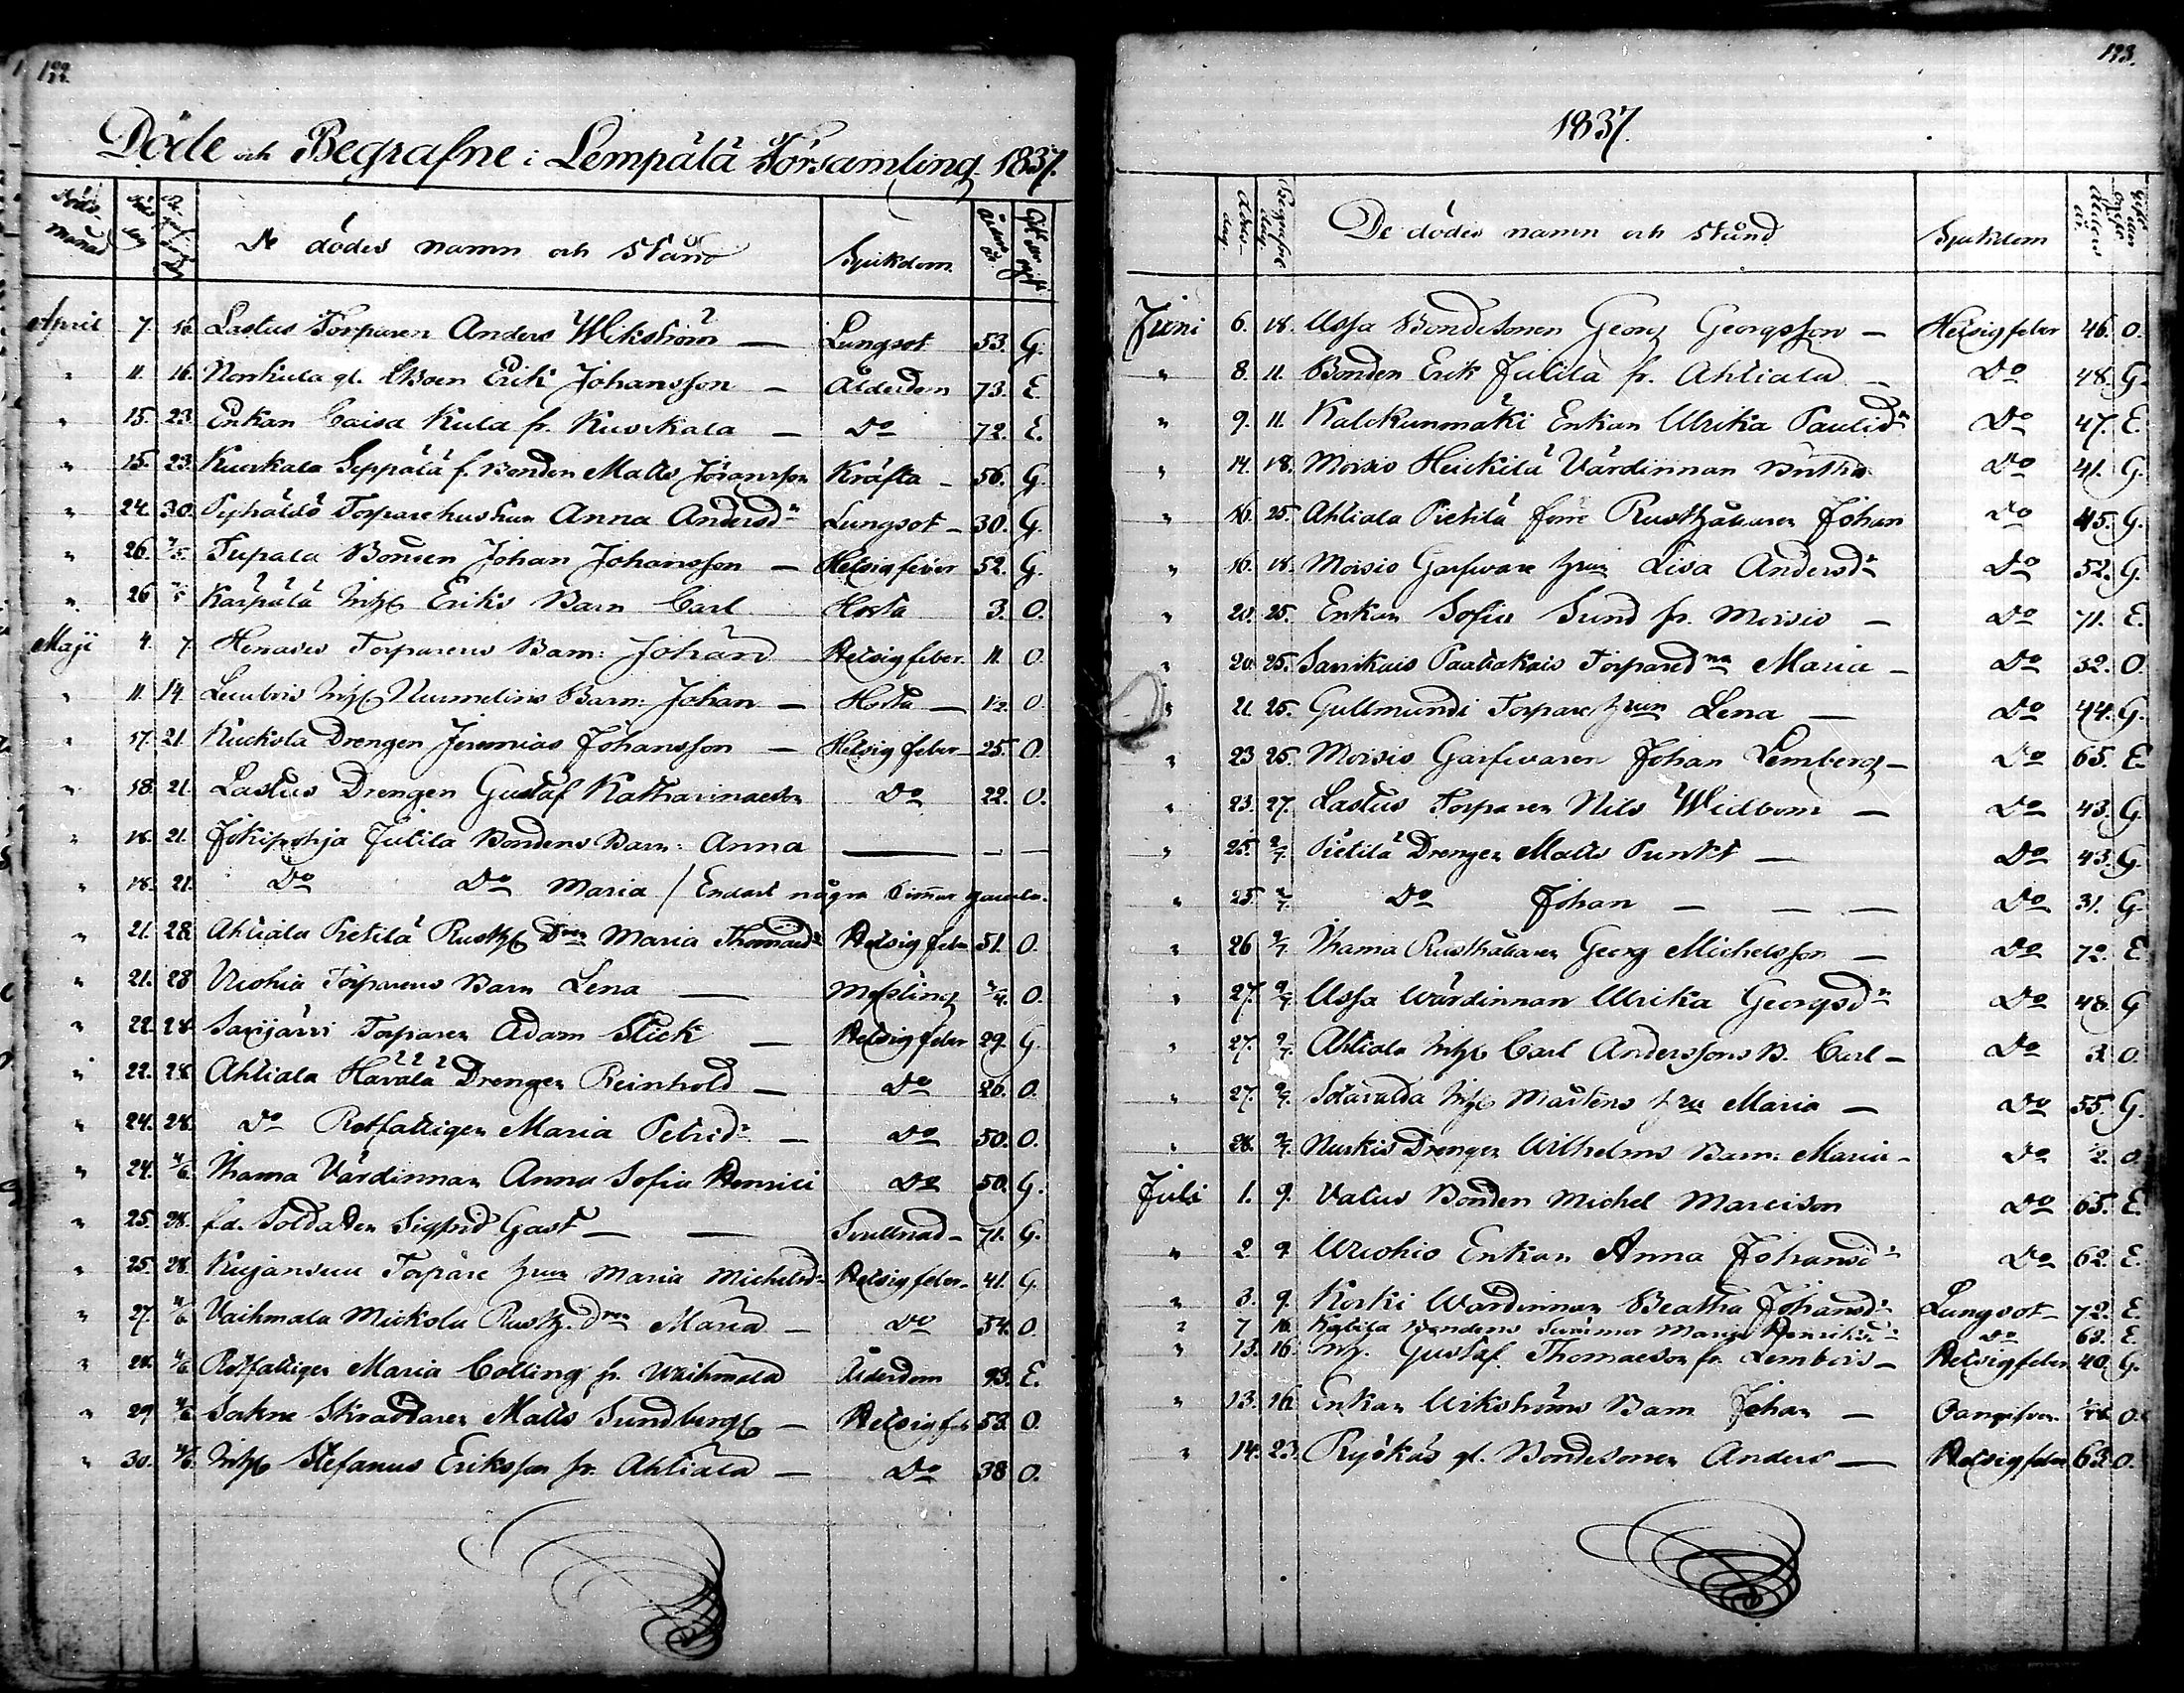 122.
Döde och Begrafne i Lempälä Församling 1837.
Döds månad Döds dag Begrafn. dag De dödes namn och stånd Sjukdom Ålders år. Gift eller ogift.
April 7. 16. Lastus Torparen Anders Wikström — Lungsot 53. G.
" 11. 16. Norrkula gl. Erik Johansson — Ålderdom 73. E.
" 15. 23. Enkan Caisa Kula fr. Kuivkala — Do 72. E.
" 15. 23. Kuivkala Seppälä f. Bonden Matts Johansson Kräfta — 56. G.
" 24. 30. Torparehustrun Anna Andersdr Lungsot — 30. G.
" 26. 7/5 Tupala Bonden Johan Johansson — Hetsigfeber 52. G.
" 26 7/5 Karpälä Inh. Eriks Barn Carl Hosta 3. O.
Maji 4. 7. Henares Torparens Barn: Johan Hetsigfeber. 11. O.
" 11. 14. Lembois Inh. Nummelins Barn: Johan — Hosta — 1/2. O.
" 17. 21. Kuckola Drengen Jeremias Johansson — Hetsig feber — 25. O.
" 18. 21. Lastus Drengen Gustaf Katharinaeson Do 22. O.
" 18. 21. Jokipohja Jutila Bondens Barn: Anna — — —
" 18. 21. Do Do Maria / Endast några timmar gamla.
" 21. 28. Ahtiala Pietilä Rusth. Drn Maria Thomaedr Hetsig feber 51. O.
" 21. 28 Torparens Barn Lena — Messling 3/4. O.
" 22. 28. Sarijärvi Torparen Adam Slick — Hetsig feber 29. G.
" 22. 28. Ahtiala Havala Drengen Reinhold — Do 20. O.
" 24. 28. Do Rotfattigen Maria Petridr — Do 50. O.
" 24. 4/6. Thama Värdinnan Anna Sofia Henrici Do 50. G.
" 25. 28. f.d. Soldaten Sigfrid Gast — — Svullnad — 71. G.
" 25. 28. Kujansuu Torpare hrun Maria Michelsdr Hetsig feber. 41. G.
" 27. 4/6 Vaihmala Mickola Rusth. Drn Maria — Do 54. O.
" 28. 4/6 Rotfattigen Maria Colling fr. Waihmala Ålderdom 93. E.
" 29. 4/6 Sockne Skräddaren Matts Sundberg — Hetsigfeb. 53. O.
" 30. 4/6. Inh. Stefanus Eriksson fr. Ahtiala — Do 38 O.
123.
1837.
Döds dag Begrafn. dag De dödes namn och stånd Sjukdom Ålders år. Gift eller ogift
Juni 6. 18. Ussa Bondesonen Georg Georgsson — Hetsigfeber 46. O.
" 8. 11. Bonden Erik Jutila fr. Ahtiala — Do 48. G.
" 9. 11. Kalckunmäki Enkan Ulrika Paulidr Do 47. E.
" 14. 18. Moisio Heickilä Värdinnan Do 41. G.
" 16. 25. Ahtiala Pietilä förre Rusthållaren Johan Do 45. G.
" 16. 18. Moisio Garfvare hrun Lisa Andersdr Do 52. G.
" 20. 25. Enkan Sofia Sund fr. Moisio — Do 71. E.
" 20. 25. Sarikais Paaliakais Torparedrn Maria — Do 32. O.
" 21 25. Gullmundi Torpare hrun Lena — Do 44. G.
" 23 25. Moisio Garfvaren Johan Lemberg — Do 65. E.
" 23. 27. Lastus Torparen Nils Widbom — Do 43. G.
" 25. 2/7. Pietilä Drengen Matts Punkt — Do 43. G.
" 25 2/7. Do Johan — — — Do 31. G.
" 26 2/7. Thama Rusthållaren Georg Michelsson — Do 72. E
" 27. 2/7. Ussa Wärdinnan Ulrika Georgsdr Do 48. G
" 27. 2/7. Ahtiala Inh. Carl Anderssons B. Carl — Do 3. O.
" 27. 2/7. Sotavalda Inh. Mårtens hru Maria — Do 55. G.
" 28. 2/7. Nurkis Drengen Wilhelms Barn: Maria — Do 1/2. O.
Juli 1. 9. Valus Bonden Michel Marcison Do 65. E.
" 2 9. Enkan Anna Johansdr Do 62. E.
" 3. 9. Korki Wärdinnan Beatha Johansdr Lungsot — 72. E.
" 7 16. Bondens Maria Henriksdr Do 62. E
" 13. 16. Inh. Gustaf Thomaeson fr. Lembois — Hetsigfeber 40. G.
" 13. 16. Enkan Wikströms Barn Johan — O.
" 14. 23. Ryökäs gl. Bondesonen Anders — Hetsigfeber 63. O.